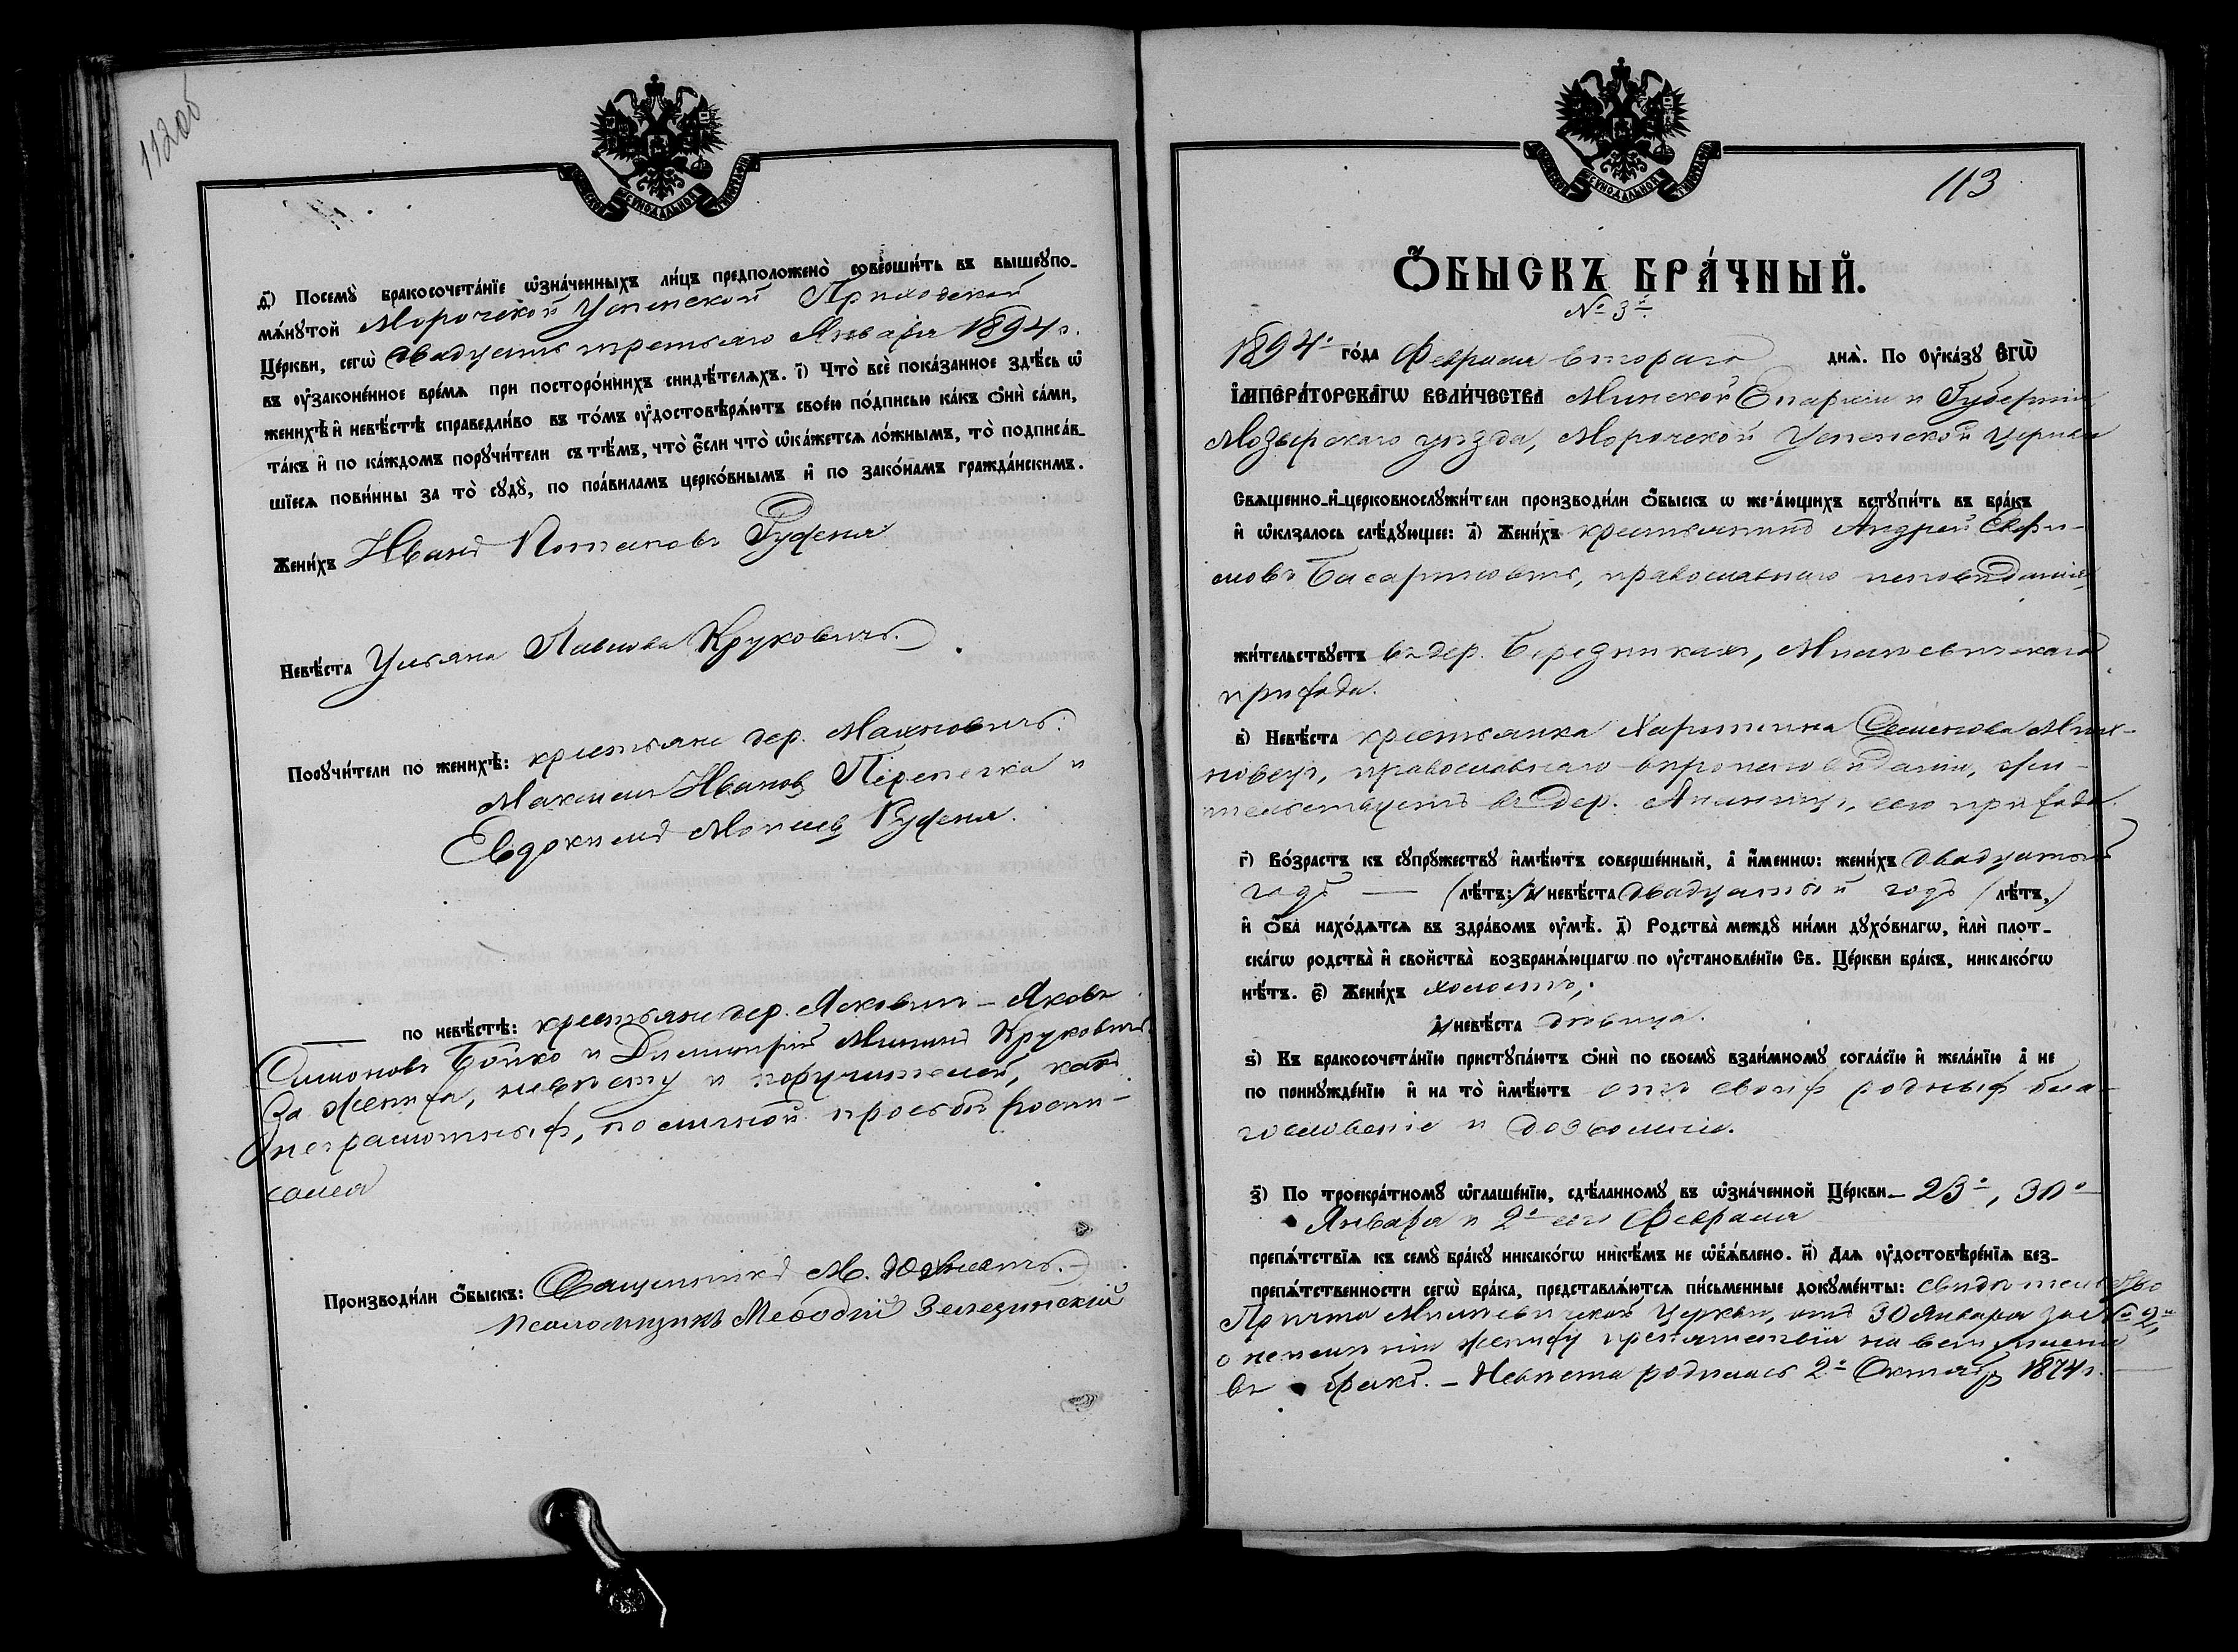 112об
МОСКОВСКОЙ СѴНОДАЛЬНОЙ ТИПОГРАФІИ
д҃і) Посемꙋ̀ бракосочета́нїе ѡ҆зна́ченныхъ ли́цъ предположено̀ соверши́ть въ вышеꙋпо-
мѧ́нꙋтой Морочской Успенской Приходской
Це́ркви, сегѡ̀ двадцать третьяго Января 1894 г.
въ ᲂу҆законе́нное вре́мѧ при посторо́ннихъ свидѣ́телѧхъ. і҃) Что̀ всѐ пока́занное здѣ́сь ѡ҆
женихѣ̀ и҆ невѣ́стѣ справедли́во въ то́мъ ᲂу҆достовѣрѧ́ютъ свое́ю по́дписью ка́къ ѻ҆нѝ са́ми,
та́къ и҆ по ка́ждомъ порꙋчи́тели съ тѣ́мъ, что̀ є҆́сли что̀ ѡ҆ка́жетсѧ ло́жнымъ, то̀ подписа́в-
шїесѧ пови́нны за то̀ сꙋдꙋ̀, по пра́виламъ церко́внымъ и҆ по зако́намъ гражда́нскимъ.
Жени́хъ Иванъ Потаповъ Руденя
Невѣ́ста Ульяна Павлова Круковичъ.
Порꙋчи́тели по женихѣ̀: крестьяне дер. Махновичъ:
Максимъ Ивановъ Перепечка и
Евдокимъ Моисеевъ Руденя.
по невѣ́стѣ: крестьяне дер. Ясковичъ – Яковъ
Симоновъ Бойко и Димитрій Мининъ Круковичъ.
За жениха, невѣсту и поручителей, какъ
неграмотныхъ, по личной просьбѣ роспи-
сался
Производи́ли ѻ҆́быскъ: Священникъ М.
псаломщикъ Меѳодій Зелезинскій
МОСКОВСКОЙ СѴНОДАЛЬНОЙ ТИПОГРАФІИ
113
Ѻ҆́БЫСКЪ БРА́ЧНЫЙ.
№ 3й
1894. го́да Февраля втораго днѧ̀. По ᲂу҆ка́зꙋ є҆гѡ̀
і҆мпера́торскагѡ вели́чества Минской Епархіи и Губерніи,
Мозырскаго уѣзда, Морочской Успенской церкви
Свѧще́нно-и҆-церковнослꙋжи́тели производи́ли ѻ҆́быскъ ѡ жела́ющихъ встꙋпи́ть въ бра́къ
и҆ ѡ҆каза́лось слѣ́дꙋющее: а҃) Жени́хъ крестьянинъ Андрей
православнаго исповѣданія,
жи́тельствꙋетъ въ дер. Березникахъ, Милевичскаго
прихода.
в҃) Невѣ́ста крестьянка Харитина Семенова Мих-
новецъ, православнаго вѣроисповѣданія, жи-
тельствуетъ въ дер. сего прихода.
г҃) Во́зрастъ къ сꙋпрꙋ́жествꙋ и҆мѣ́ютъ соверше́нный, а҆ и҆́меннѡ: жени́хъ двадцатый
годъ — (лѣ́тъ:) а҆ невѣ́ста двадцатый годъ (лѣ́тъ,)
и҆ ѻ҆́ба нахо́дѧтсѧ въ здра́вомъ ᲂу҆мѣ̀. д҃) Родства̀ междꙋ̀ ни́ми дꙋхо́внагѡ, и҆лѝ плот-
ска́гѡ родства̀ и҆ сво́йства̀ возбранѧ́ющагѡ по ᲂу҆становле́нїю Св. Це́ркви бра́къ, никако́гѡ
нѣ́тъ. є҃) Жени́хъ холостъ,
а҆ невѣ́ста дѣвица.
ѕ҃) Къ бракосочета́нїю пристꙋпа́ютъ ѻ҆нѝ по своемꙋ̀ взаи́мномꙋ согла́сїю и҆ жела́нїю а҆ не
по принꙋжде́нїю и҆ на то̀ и҆мѣ́ютъ отъ своихъ родныхъ бла-
гословеніе и дозволеніе.
з҃) По троекра́тномꙋ ѡ҆глаше́нїю, сдѣ́ланномꙋ въ ѡ҆зна́ченной Це́ркви – 23°, 30°
Января и 2° сего Февраля
препѧ́тствїѧ къ семꙋ̀ бра́кꙋ никако́гѡ никѣ́мъ не ѡ҆бъѧ́влено. и҃) Длѧ ᲂу҆достовѣре́нїѧ без-
препѧ́тственности сегѡ̀ бра́ка, представлѧ́ютсѧ пи́сьменные докꙋме́нты: свидѣтельство
Причта Милевичской церкви, отъ 30 Января за № 2м,
о неимѣніи жениху препятствія на вступленіе
въ бракъ. – Невѣста родилась 2° Октября 1874 г.